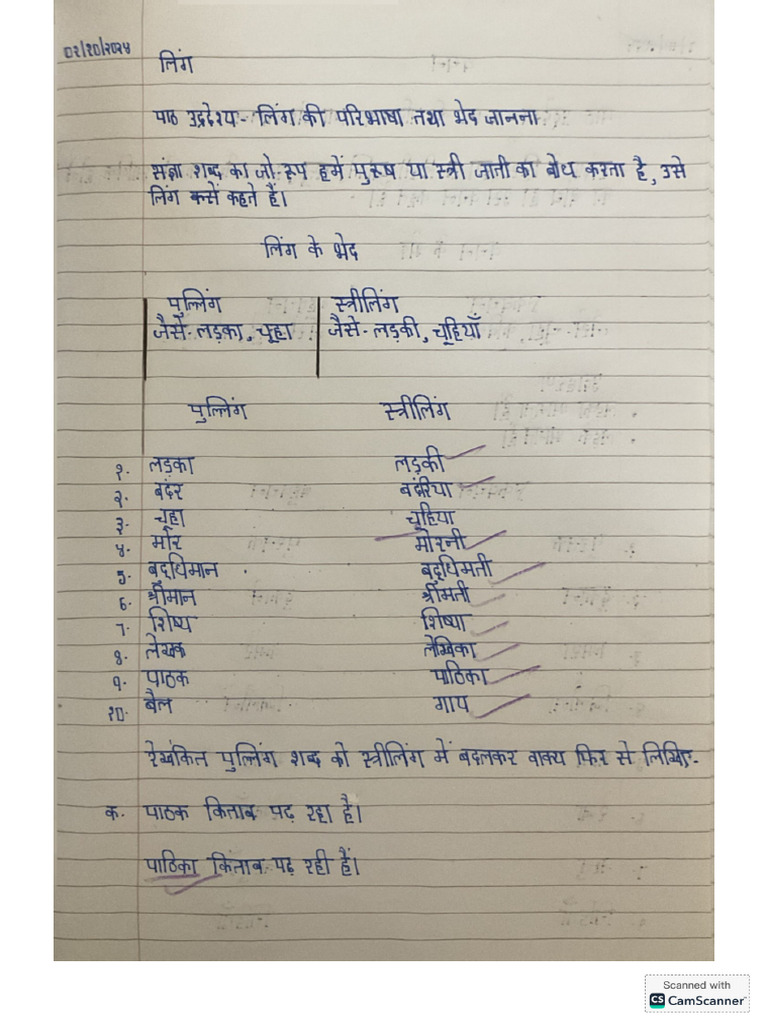 ०२/१०/२०२४
लिंग
पाठ उद्देश्य- लिंग की परिभाषा तथा भेद जानना
संज्ञा शब्द का जो रूप हमें पुरुष या स्त्री जाती का बोध करता है, उसे
लिंग कहते हैं।
लिंग के भेद
पुल्लिंग स्त्रीलिंग
जैसे- लड़का, चूहा जैसे- लड़की, चूहियाँ
पुल्लिंग स्त्रीलिंग
१. लड़का लड़की
२. बंदर बंदरिया
३. चूहा चूहिया
४. मोर मोरनी
५. बुद्धिमान बुद्धिमती
६. श्रीमान श्रीमती
७. शिष्य शिष्या
८. लेखक लेखिका
९. पाठक पाठिका
१०. बैल गाय
रेखंकित पुल्लिंग शब्द को स्त्रीलिंग में बदलकर वाक्य फिर से लिखिए-
क. पाठक किताब पढ़ रहा है।
पाठिका किताब पढ़ रही हैं।
Scanned with
CS CamScanner